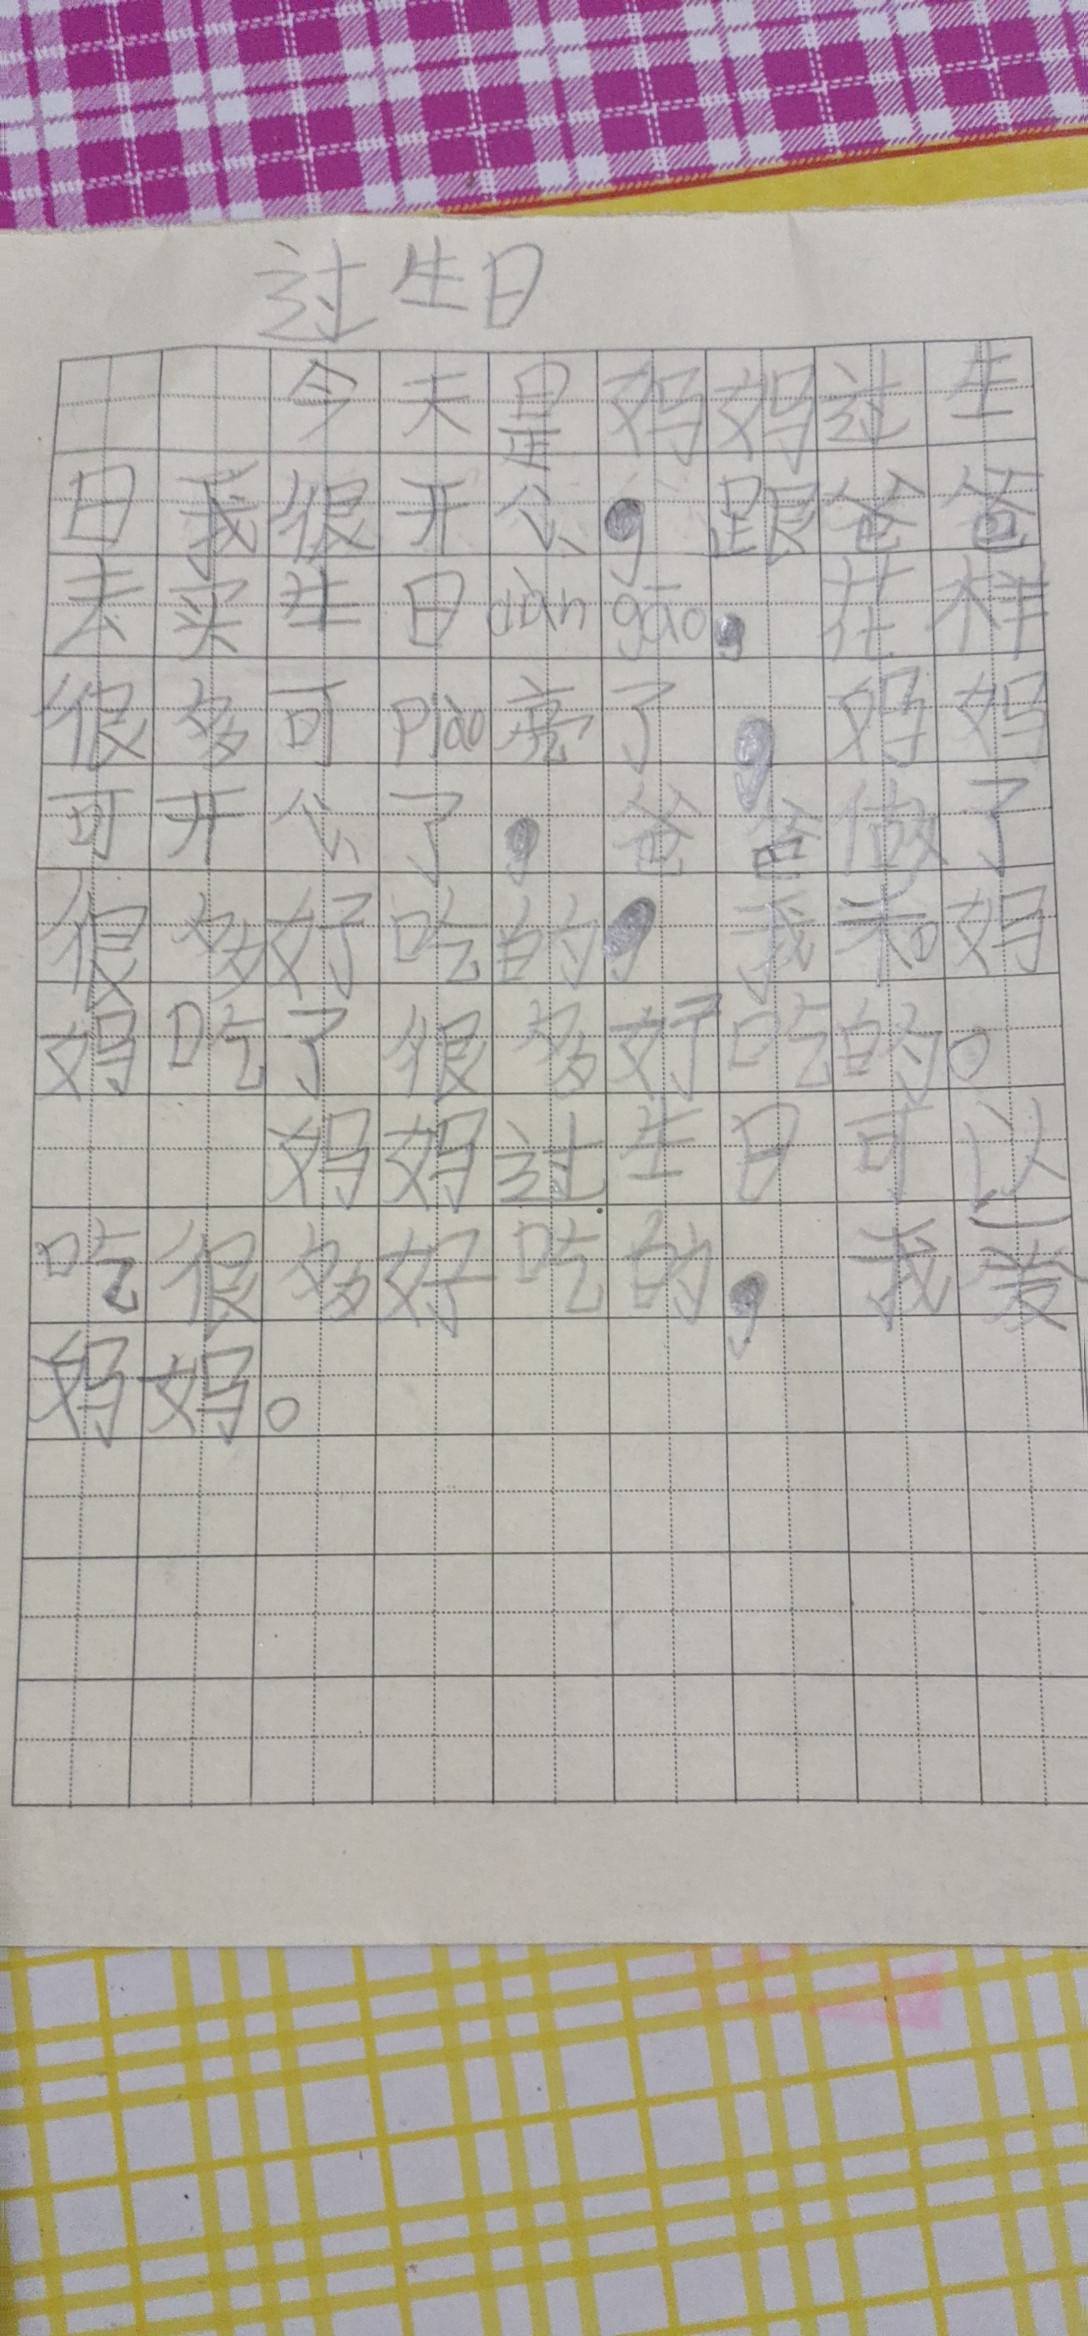 过生日
今天是妈妈过生
日我很开心，跟爸爸
去买生日dàngāo，花样
很多可piào亮了，妈妈
可开心了，爸爸做了
很多好吃的，我和妈
妈吃了很多好吃的。
妈妈过生日可以
吃很多好吃的，我爱
妈妈。